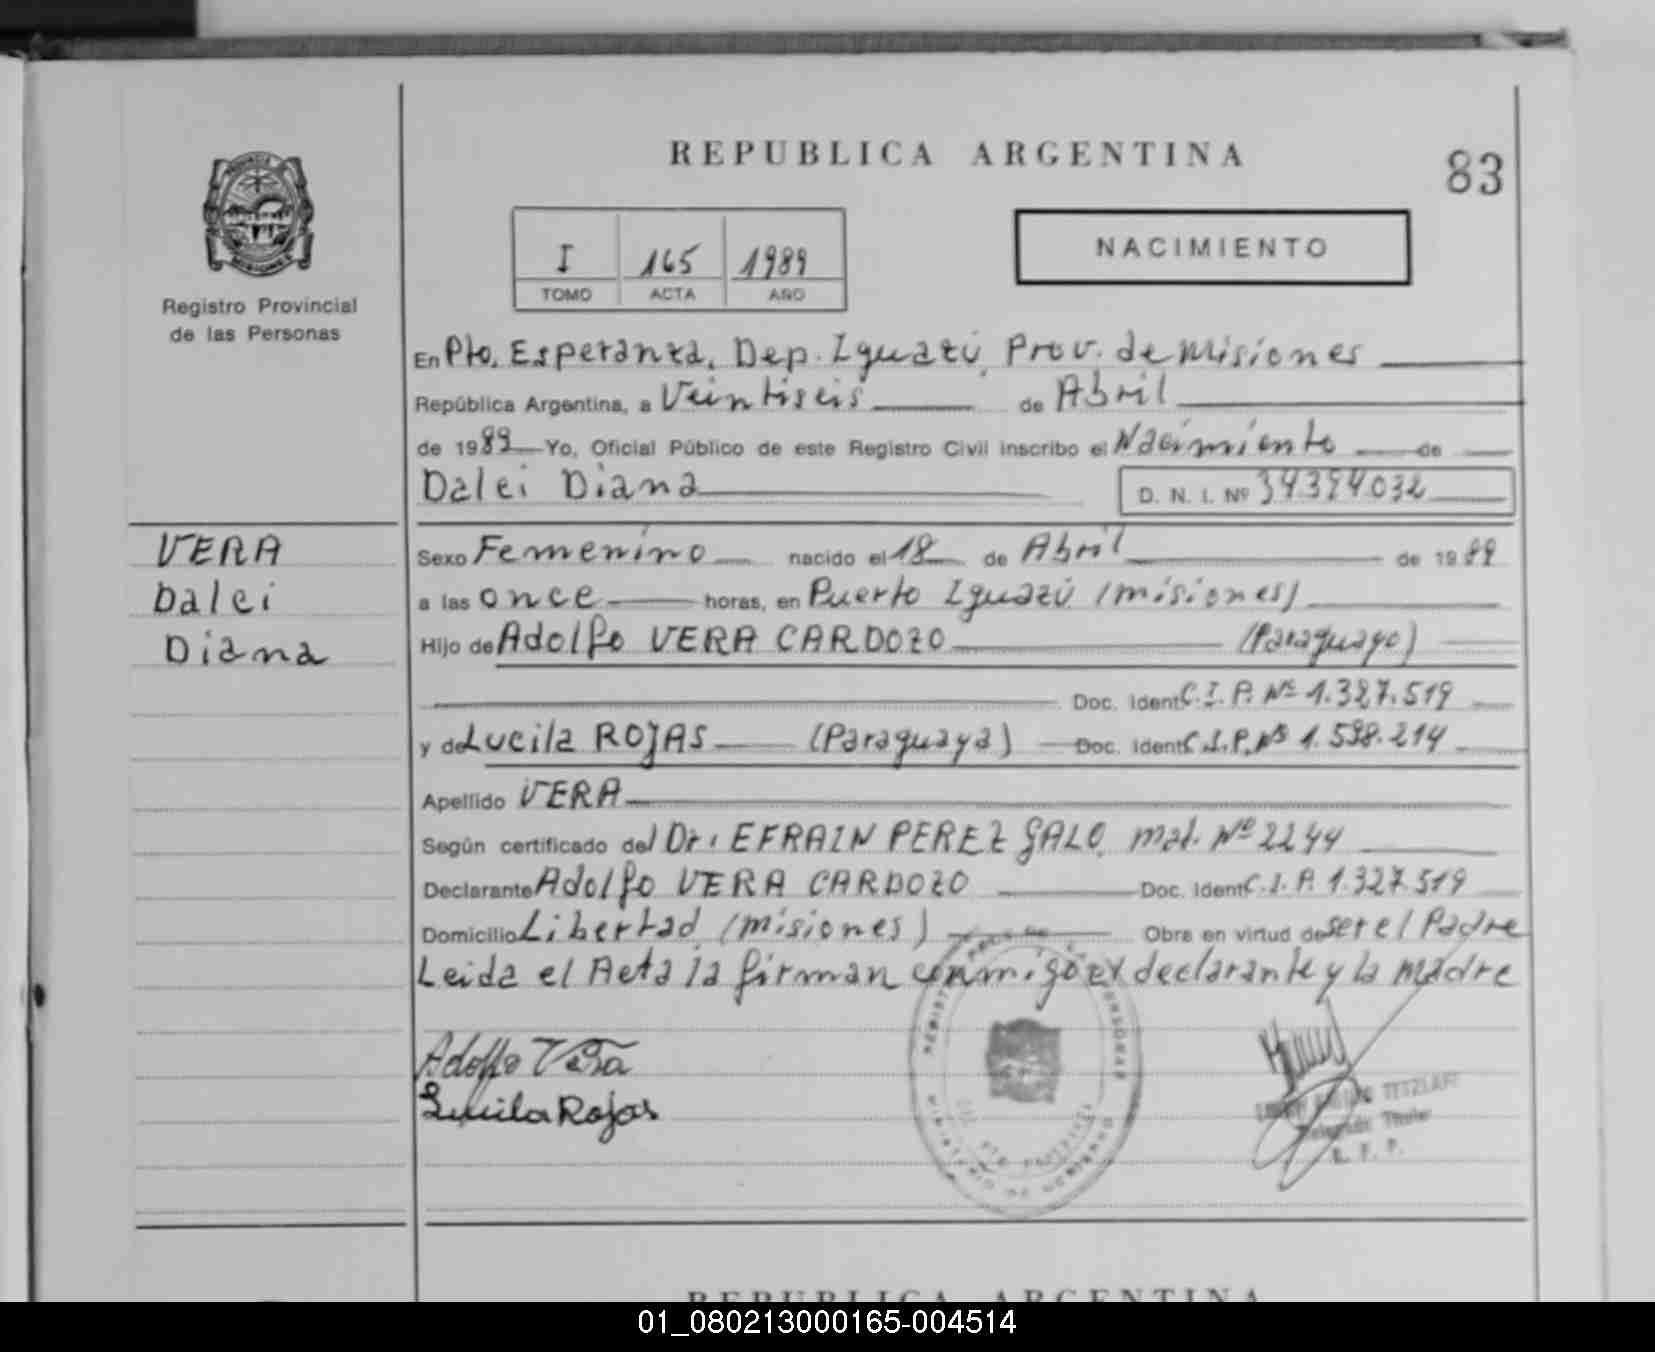 REPUBLICA ARGENTINA
83
I 165 1989
TOMO ACTA AÑO
NACIMIENTO
Registro Provincial
de las Personas
En Pto. Esperanza, Dep. Iguazú, Prov. de Misiones
República Argentina, a Veintiseis de Abril
de 1989 Yo, Oficial Público de este Registro Civil inscribo el Nacimiento de
Dalei Diana D. N. I. Nº 34394032
VERA
Dalei
Diana
Sexo Femenino nacido el 18 de Abril de 1989
a las once horas, en Puerto Iguazú (Misiones)
Hijo de Adolfo VERA CARDOZO (Paraguayo)
Doc. Ident C.I.P. Nº 1.327.519
y de Lucila ROJAS (Paraguaya) Doc. Ident C.I.P. Nº 1.598.214
Apellido VERA
Según certificado del Dr. EFRAIN PEREZ GALO, Mat. Nº 2244
Declarante Adolfo VERA CARDOZO Doc. Ident C.I.P. 1.327.519
Domicilio Libertad (Misiones) Obra en virtud de ser el Padre
Leida el Acta la firman conmigo el declarante y la madre
Adolfo Vera
Lucila Rojas
TETZLAFF
Titular
R. P. P.
REPUBLICA ARGENTINA
01_080213000165-004514